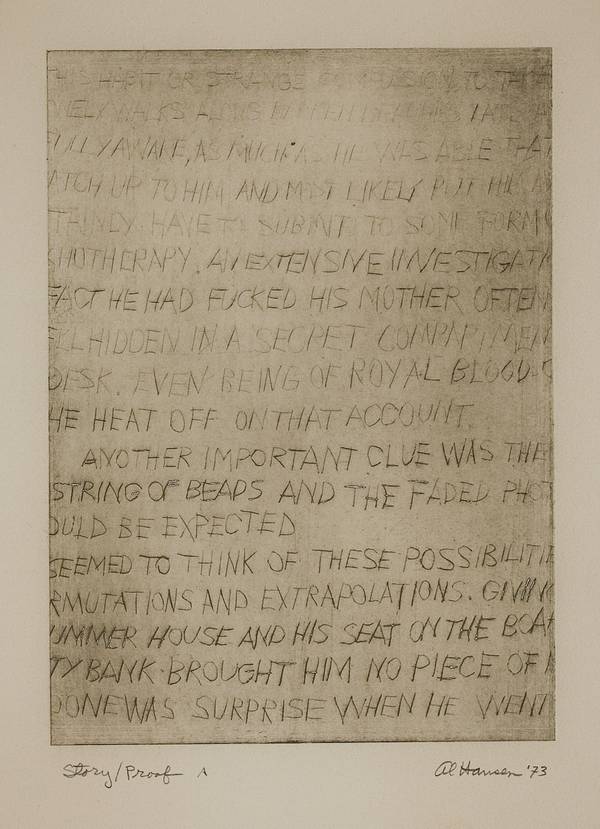 THIS HABIT OR STRANGE COMPULSION TO TAKE
ONELY WALKS ALONG HIDDEN BEACHES LATE A
FULLY AWARE, AS MUCH AS HE WAS ABLE THAT
ATCH UP TO HIM AND MOST LIKELY PUT HIM A
TAINLY HAVE TO SUBMIT TO SOME FORM
CHOTHERAPY. AN EXTENSIVE INVESTIGATI
FACT HE HAD FUCKED HIS MOTHER OFTEN
ELL HIDDEN IN A SECRET COMPARTMEN
DESK. EVEN BEING OF ROYAL BLOOD
HE HEAT OFF ON THAT ACCOUNT.
ANOTHER IMPORTANT CLUE WAS THE
STRING OF BEADS AND THE FADED PHOT
OULD BE EXPECTED
SEEMED TO THINK OF THESE POSSIBILITIE
RMUTATIONS AND EXTRAPOLATIONS. GIVING
UMMER HOUSE AND HIS SEAT ON THE BOA
TY BANK BROUGHT HIM NO PIECE OF
OONE WAS SURPRISE WHEN HE WENT
Story/Proof A
Al Hansen '73